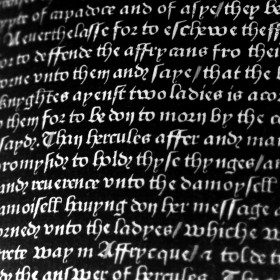 ynte of capadoce and of asye/they be
Neuerthelasse for to eschewe theff
for to deffende the affrycans fro their
vnto them andz saye/that the l
knyghtes ayenst two ladies is acor
them for to be don to morn by the c
saydz. Than hercules affer andz man
promysidz to holdz thyse thynges/a
andz reuerence vnto the damoysell
amoisell hauyng don her message
vnto the ladyes/whiche w
way in Affrycque/z tolde
the answer of hercules